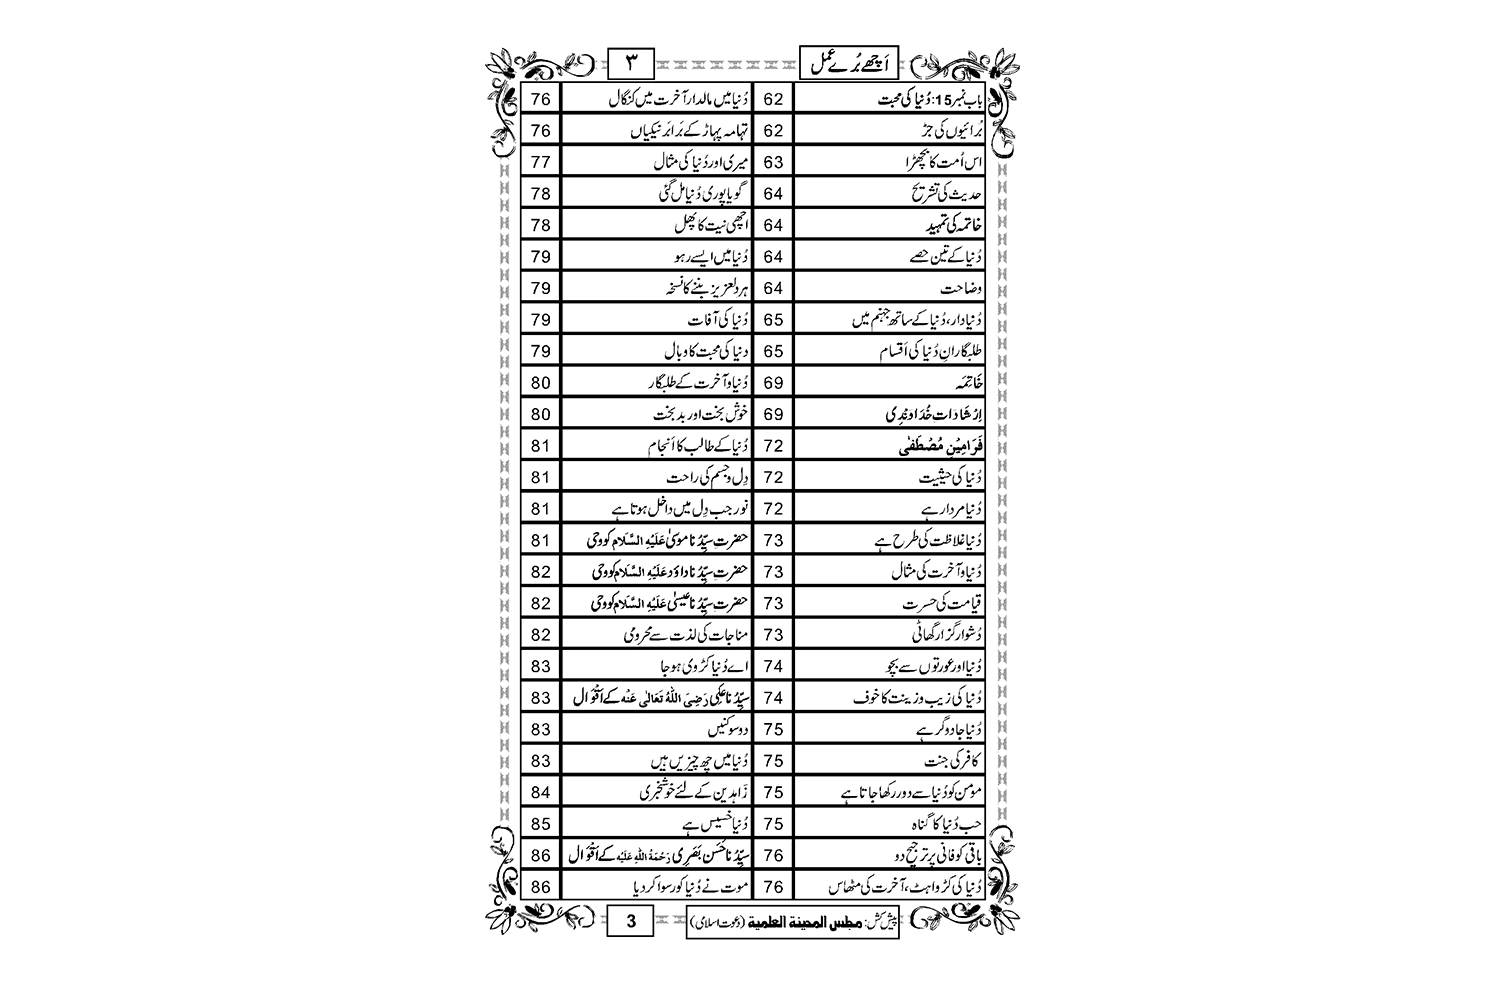 اَچھے بُرے عمل
۳
باب نمبر 15: دُنیا کی محبت 62
بُرائیوں کی جڑ 62
اس اُمت کا بچھڑا 63
حدیث کی تشریح 64
خاتمہ کی تمہید 64
دُنیا کے تین حصے 64
وضاحت 64
دُنیادار، دُنیا کے ساتھ جہنم میں 65
طلبگارانِ دُنیا کی اَقسام 65
خَاتِمَہ 69
اِرْشَادَاتِ خُدَاوَنْدِی 69
فَرَامِیْنِ مُصْطَفٰی 72
دُنیا کی حیثیت 72
دُنیا مردار ہے 72
دُنیا غلاظت کی طرح ہے 73
دُنیا و آخرت کی مثال 73
قیامت کی حسرت 73
دُشوار گزار گھاٹی 73
دُنیا اور عورتوں سے بچو 74
دُنیا کی زیب و زینت کا خوف 74
دُنیا جادوگر ہے 75
کافر کی جنت 75
مؤمن کو دُنیا سے دور رکھا جاتا ہے 75
حب دُنیا کا گناہ 75
باقی کو فانی پر ترجیح دو 76
دُنیا کی کڑواہٹ، آخرت کی مٹھاس 76
دُنیا میں مالدار آخرت میں کنگال 76
تہامہ پہاڑ کے بَرابَر نیکیاں 76
میری اور دُنیا کی مثال 77
گویا پوری دُنیا مل گئی 78
اچھی نیت کا پھل 78
دُنیا میں ایسے رہو 79
ہر دلعزیز بننے کا نسخہ 79
دُنیا کی آفات 79
دنیا کی محبت کا وبال 79
دُنیا و آخرت کے طلبگار 80
خوش بخت اور بد بخت 80
دُنیا کے طالب کا اَنجام 81
دِل و جسم کی راحت 81
نور جب دِل میں داخل ہوتا ہے 81
حضرتِ سیِّدُنا موسیٰ عَلَیْہِ السَّلَام کو وحی 81
حضرتِ سیِّدُنا داوٗد عَلَیْہِ السَّلَام کو وحی 82
حضرتِ سیِّدُنا عیسیٰ عَلَیْہِ السَّلَام کو وحی 82
مناجات کی لذت سے محرومی 82
اے دُنیا کڑوی ہو جا 83
سیِّدُنا عَلِی رَضِیَ اللّٰہُ تَعَالٰی عَنْہ کے اَقْوَال 83
دو سوکنیں 83
دُنیا میں چھ چیزیں ہیں 83
زَاہدین کے لئے خوشخبری 84
دُنیا خسیس ہے 85
سیِّدُنا حَسَن بَصَرِی رَحْمَۃُ اللّٰہِ عَلَیْہ کے اَقْوَال 86
موت نے دُنیا کو رسوا کر دیا 86
پیش کش: مجلس المدینة العلمیة (دعوت اسلامی)
3